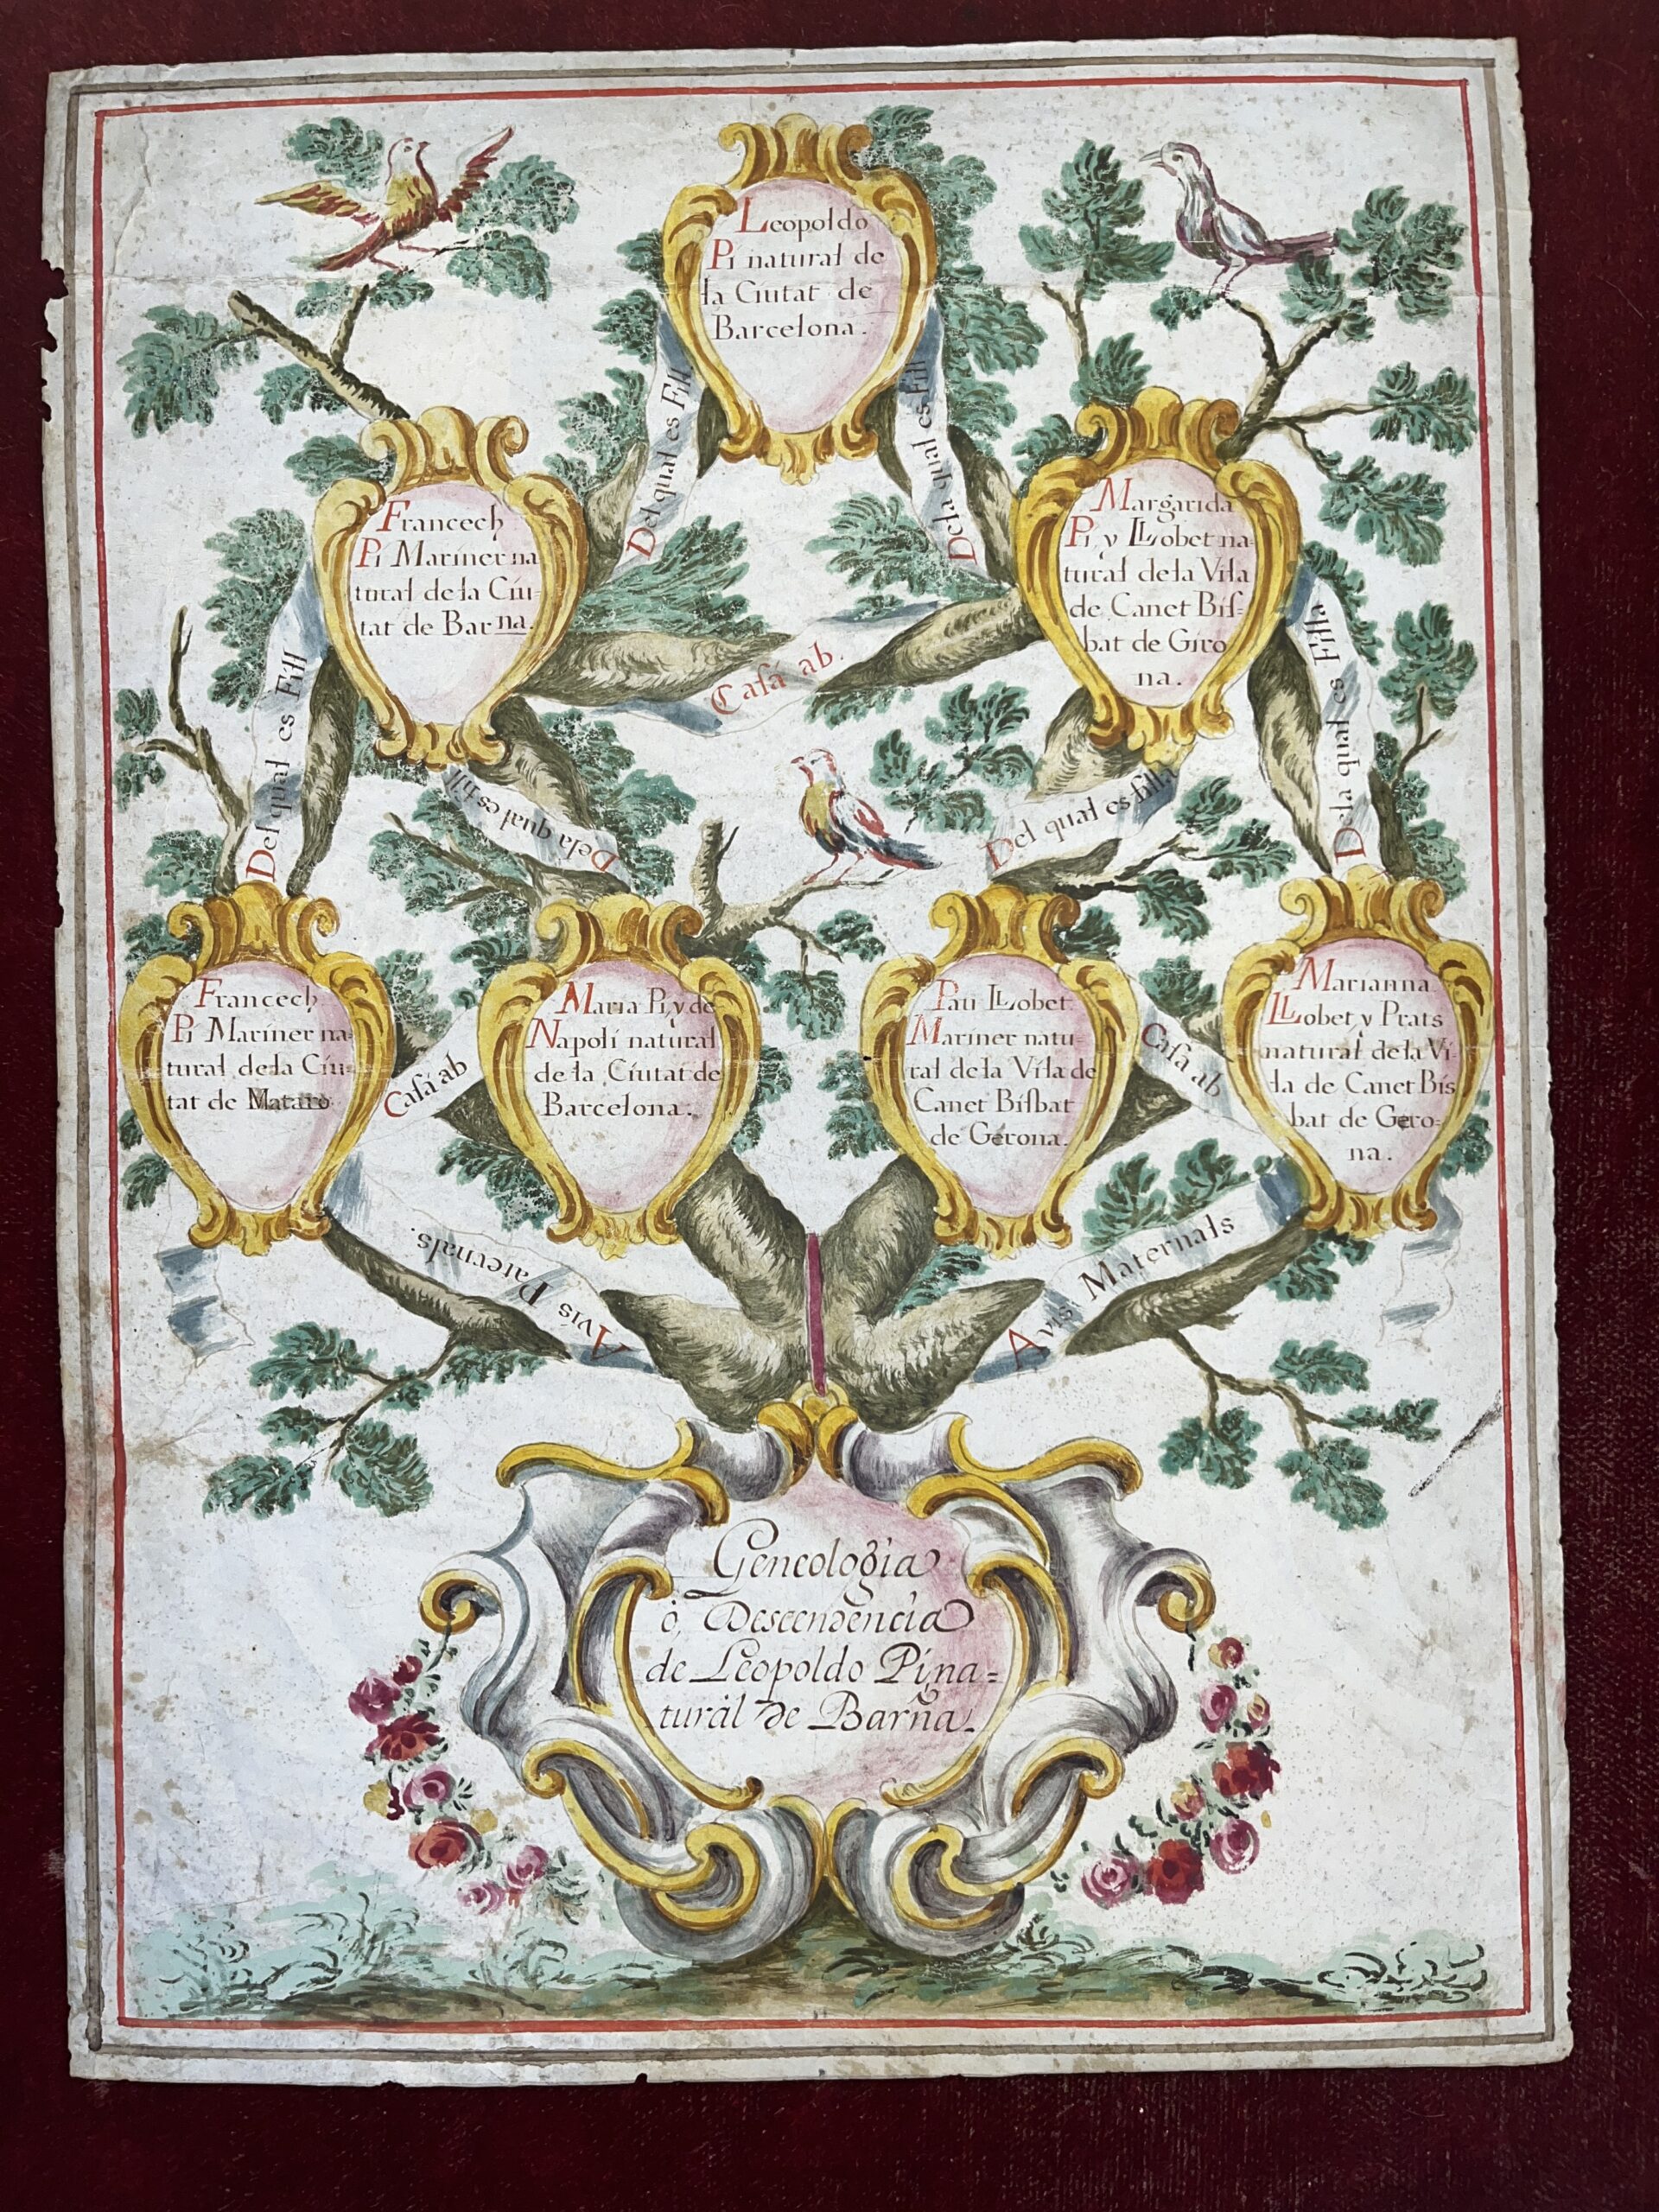 Leopoldo
Pi natural de
la Ciutat de
Barcelona.
Del qual es Fill
Dela qual es fill
Francech
Pi Mariner na
tural de la Ciu-
tat de Barna.
Casá ab.
Margarida
Pi y LLobet na-
tural dela Vila
de Canet Bis-
bat de Giro
na.
Del qual es Fill
Dela qual es fill
Del qual es filla
Dela qual es Filla
Francech
Pi Mariner na
tural dela Ciu-
tat de Mataro
Casá ab
Maria Pi y de
Napoli natural
de la Ciutat de
Barcelona.
Pau LLobet
Mariner natu-
ral dela Vila de
Canet Bisbat
de Gerona.
Casa ab
Marianna
LLobet y Prats
natural dela Vi-
la de Canet Bis
bat de Gero-
na.
Avis Paternals.
Avis Maternals
Geneologia
ò, Descendencia
de Leopoldo Pi na=
tural de Barña.